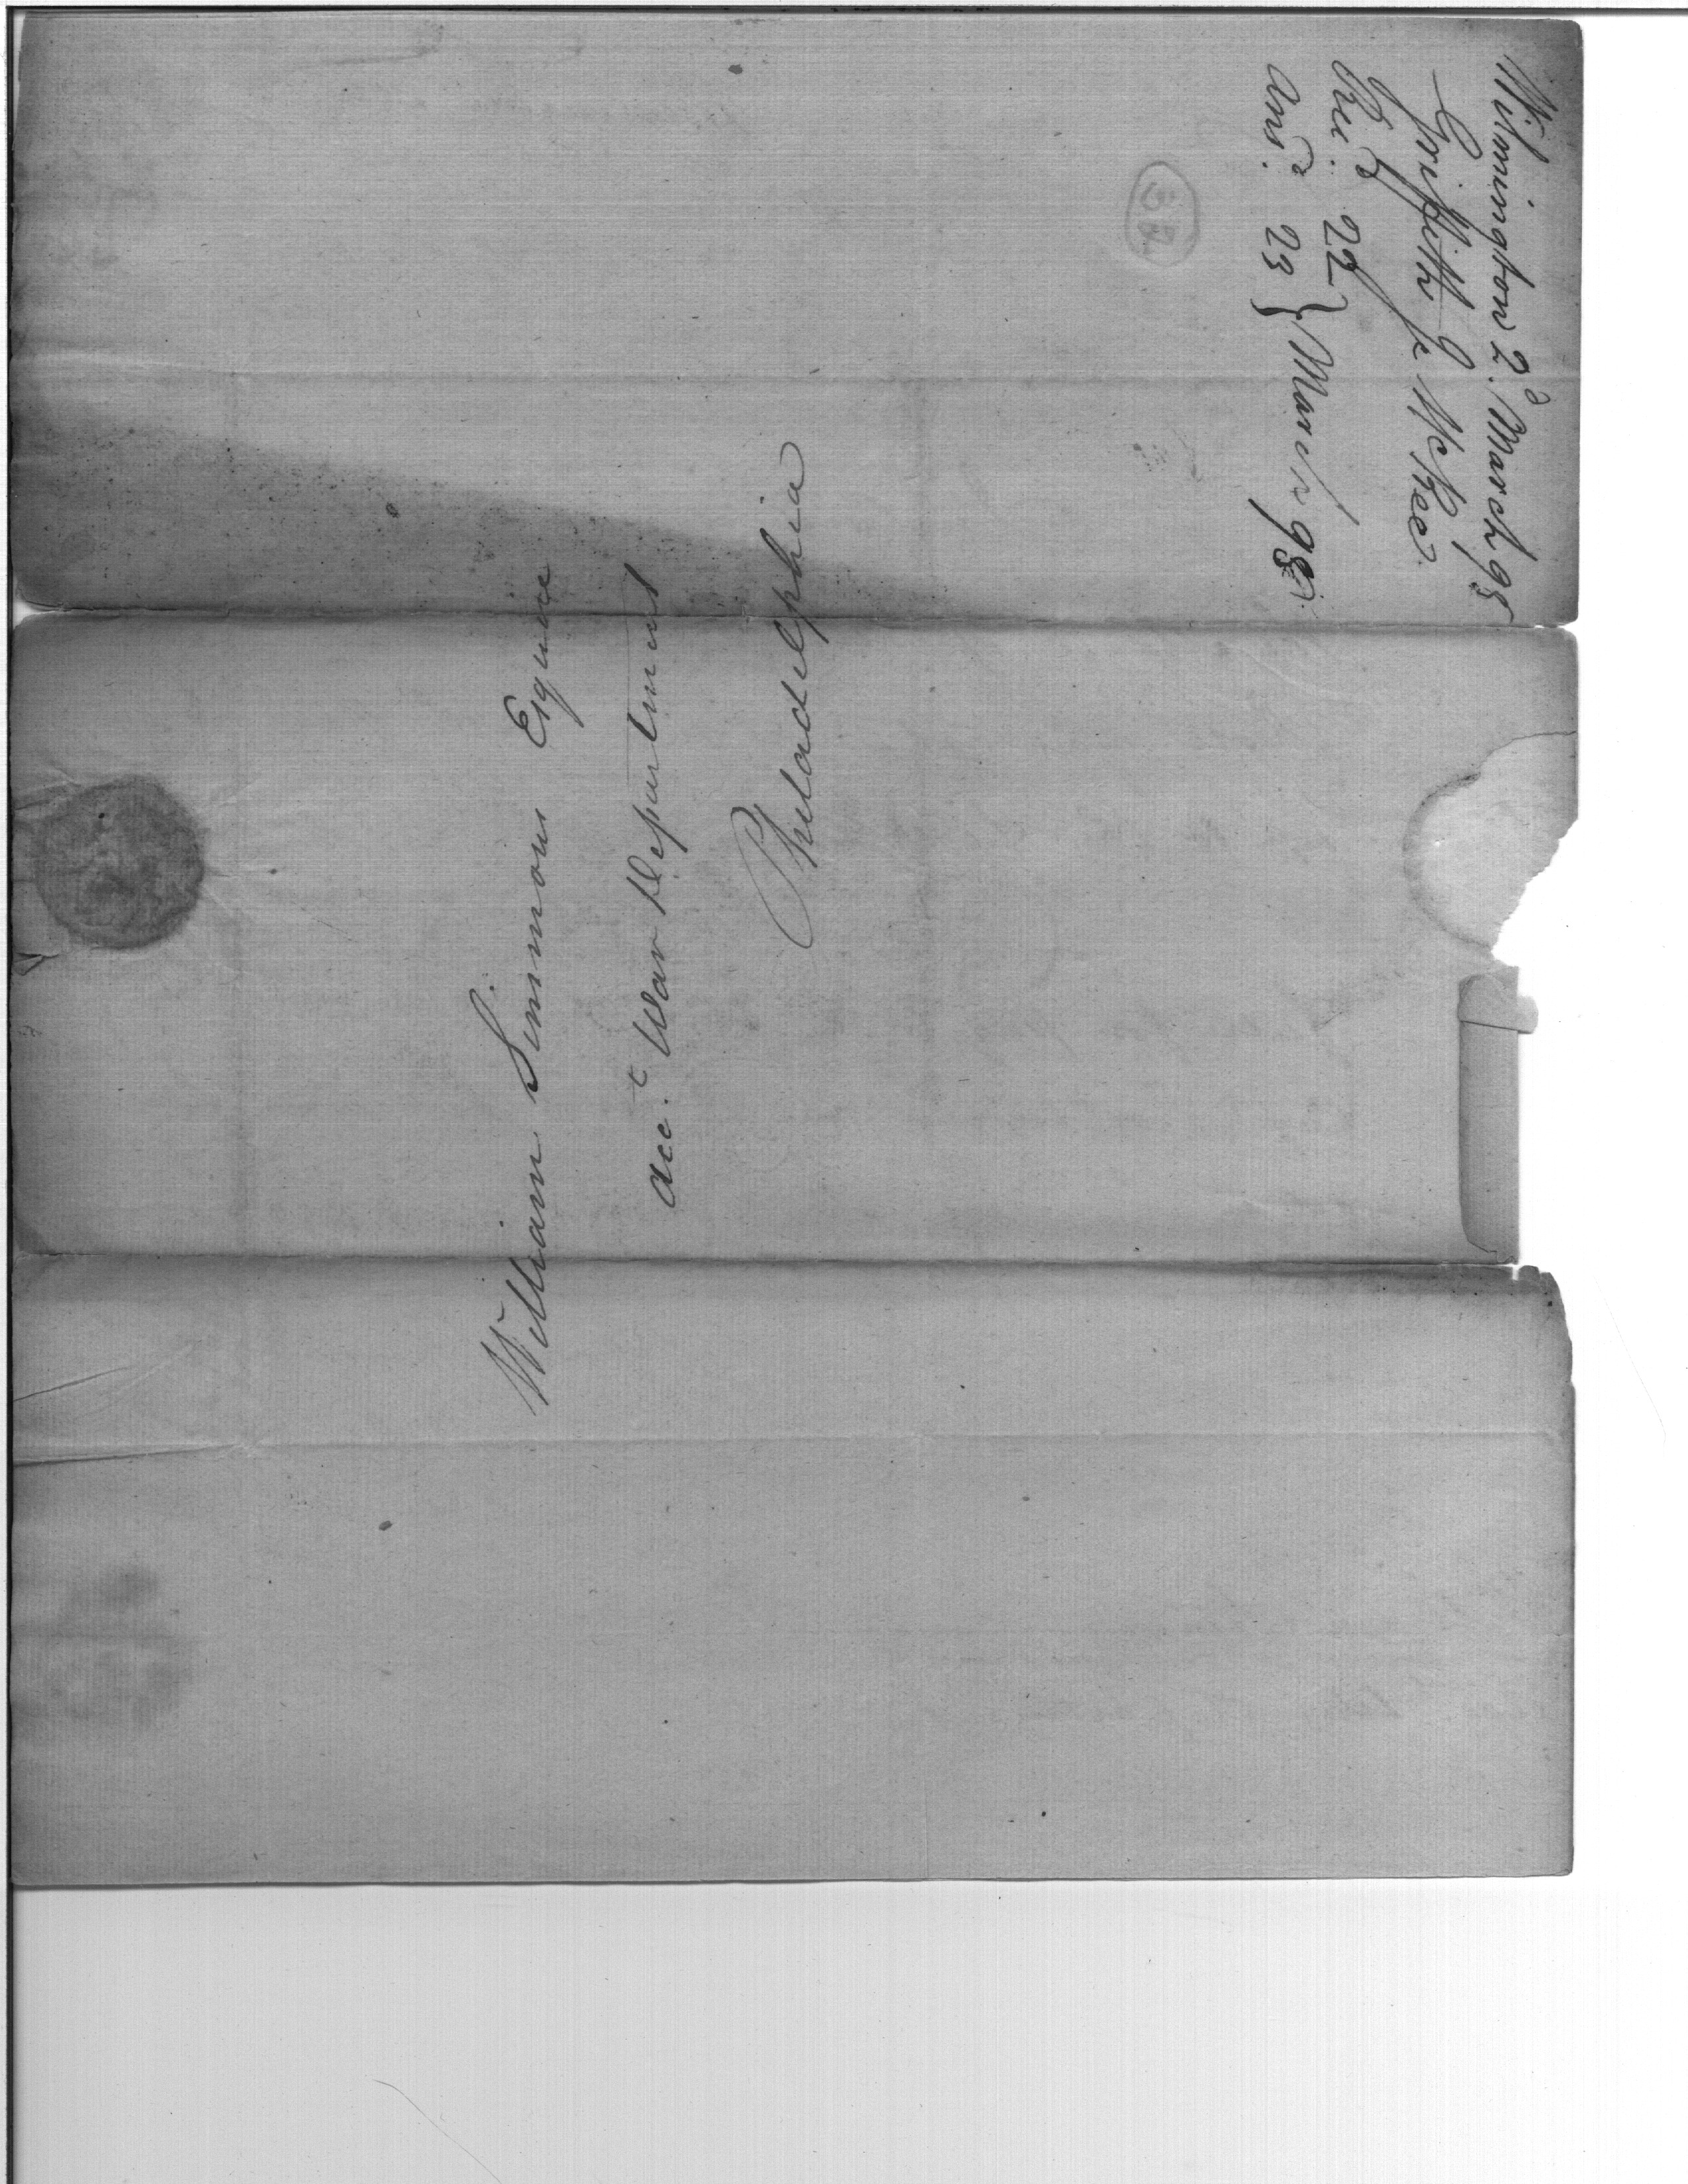 Wilmington 2d. March 98
Griffith J. McRee.
22 } March 98.
Ansd. 23
William Simmons Esquire
Acct. War Department
Philadelphia